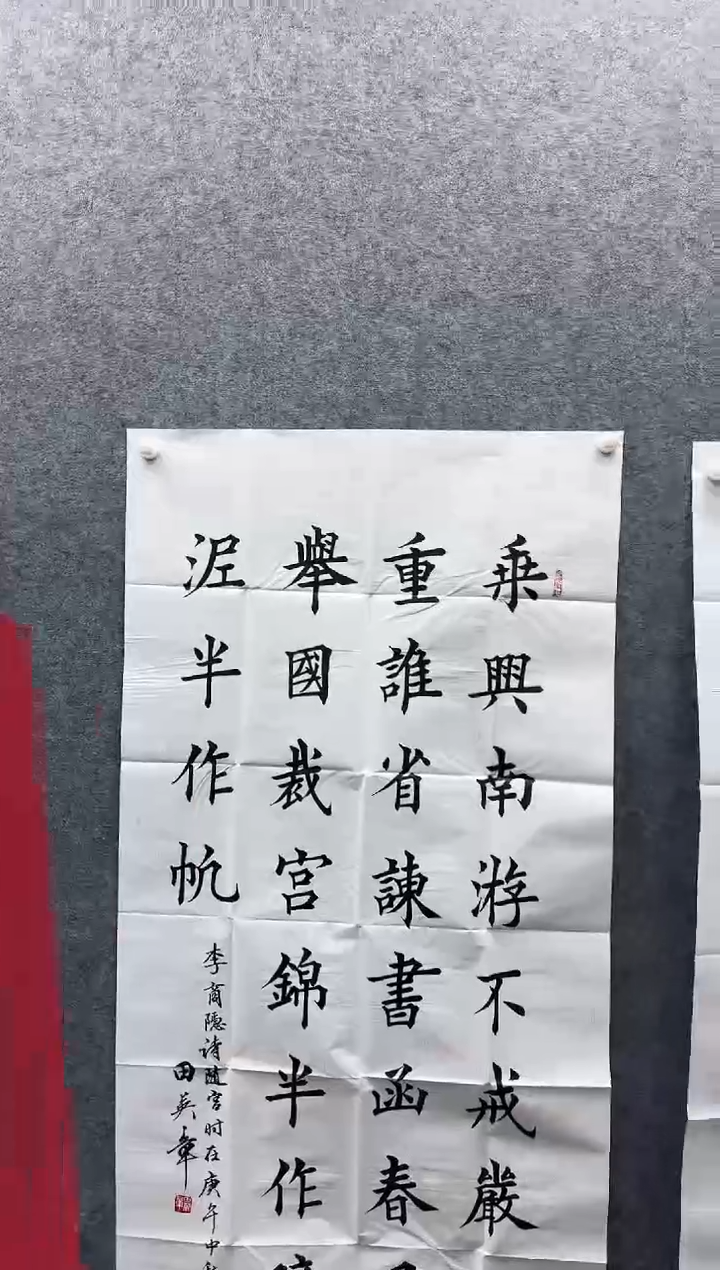 乗興南游不戒嚴
重誰省諫書函春
舉國裁宮錦半作
泥半作帆
李商隱诗隨宫时在庚午中
田英章